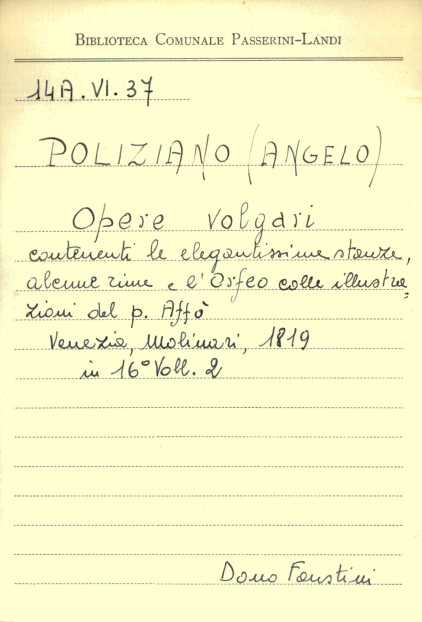 BIBLIOTECA COMUNALE PASSERINI-LANDI
14A.VI.37
POLIZIANO (ANGELO)
Opere volgari
contenenti le elegantissime stanze,
alcune rime e l'Orfeo colle illustra=
zioni del p. Affò
Venezia, Molinari, 1819
in 16° Voll. 2
Dono Faustini